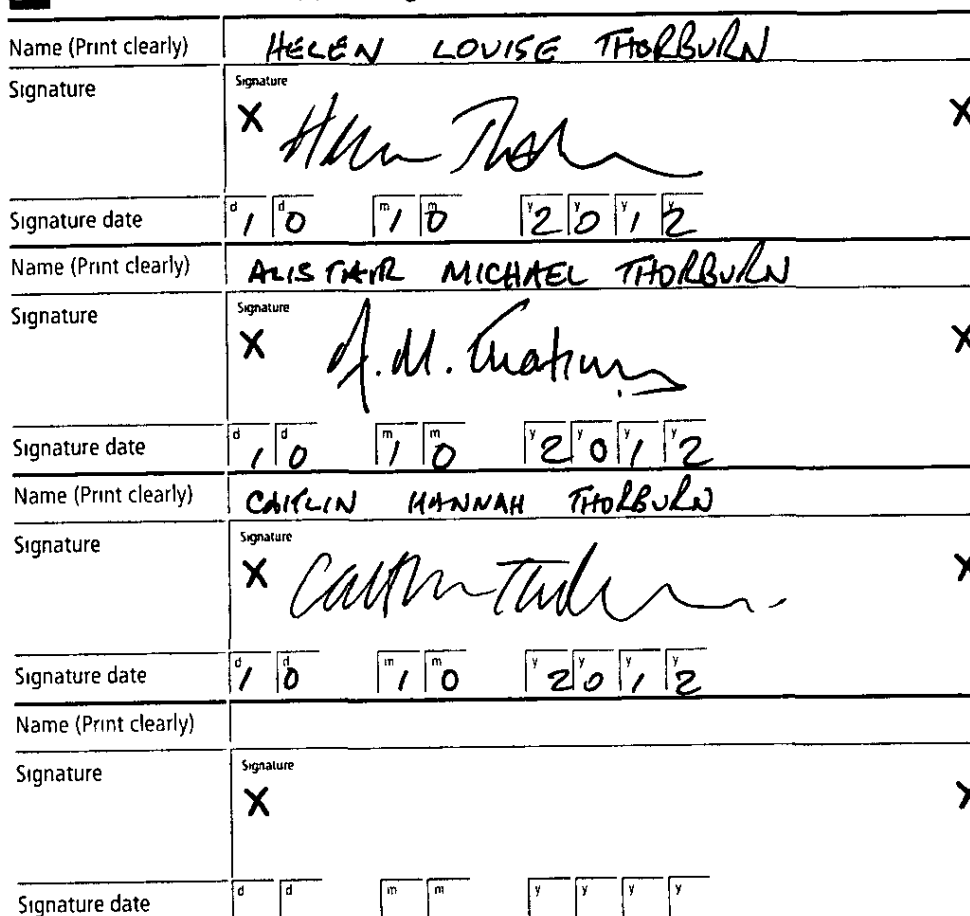 Name (Print clearly) HELEN LOUISE THORBURN
Signature Signature
X Helen Thorburn X
Signature date d1 d0 m1 m0 y2 y0 y1 y2
Name (Print clearly) ALISTAIR MICHAEL THORBURN
Signature Signature
X A.M. X
Signature date d1 d0 m1 m0 y2 y0 y1 y2
Name (Print clearly) CAITLIN HANNAH THORBURN
Signature Signature
X Caitlin Thorburn X
Signature date d1 d0 m1 m0 y2 y0 y1 y2
Name (Print clearly)
Signature Signature
X X
Signature date d d m m y y y y